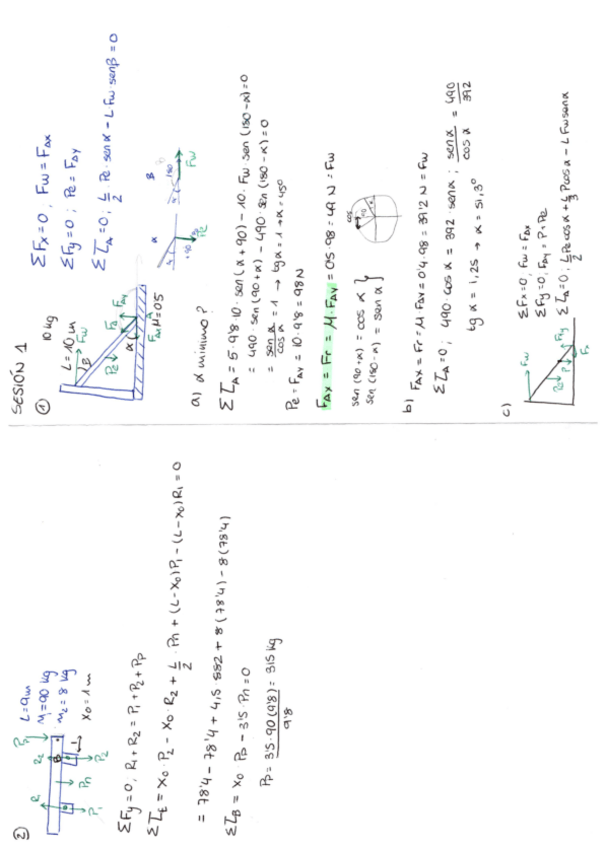 SESIÓN 1
①
10 kg
L = 10 m
Fw
β
Pe
Fs
FAy
α
A
FAx μ=05
ΣFx=0, Fw = FAx
ΣFy=0; Pe = FAy
ΣτA=0; L/2 · Pe · sen α - L Fw sen β = 0
α
Pe
+90
β
180
Fw
a) α mínimo?
ΣτA = 5·9'8·10·sen(α+90) - 10·Fw·sen(180-α)=0
= 490·sen(90+α) - 490·sen(180-α)=0
= sen α / cos α = 1 → tg α = 1 → α = 45º
Pe = FAy = 10·9'8 = 98 N
FAx = Fr = μ·FAy = 05·98 = 49 N = Fw
sen(90+α) = cos α }
sen(180-α) = sen α }
cos
b) FAx = Fr = μ·FAy = 0'4·98 = 39'2 N = Fw
ΣτA=0; 490·cos α = 392·sen α; sen α / cos α = 490/392
tg α = 1,25 → α = 51,3º
c)
Fw
Pe
P
FAy
Fs
ΣFx=0, Fw = FAx
ΣFy=0, FAy = P+Pe
ΣτA=0; L/2 Pe cos α + L/3 P cos α - L Fw sen α
②
L = 9m
m1 = 90 kg
m2 = 8 kg
x0 = 1 m
R1
R2
Pp
B
1
P1
Pn
P2
ΣFy=0, R1 + R2 = P1 + P2 + Pp
ΣτE = x0·P2 - x0·R2 + L/2·Pn + (L-x0)P1 - (L-x0)R1 = 0
= 78'4 - 78'4 + 4,5·882 + 8(78'4) - 8(78'4)
ΣτB = x0·Pp - 3'5·Pn = 0
Pp = 3'5·90(9'8) / 9'8 = 315 kg